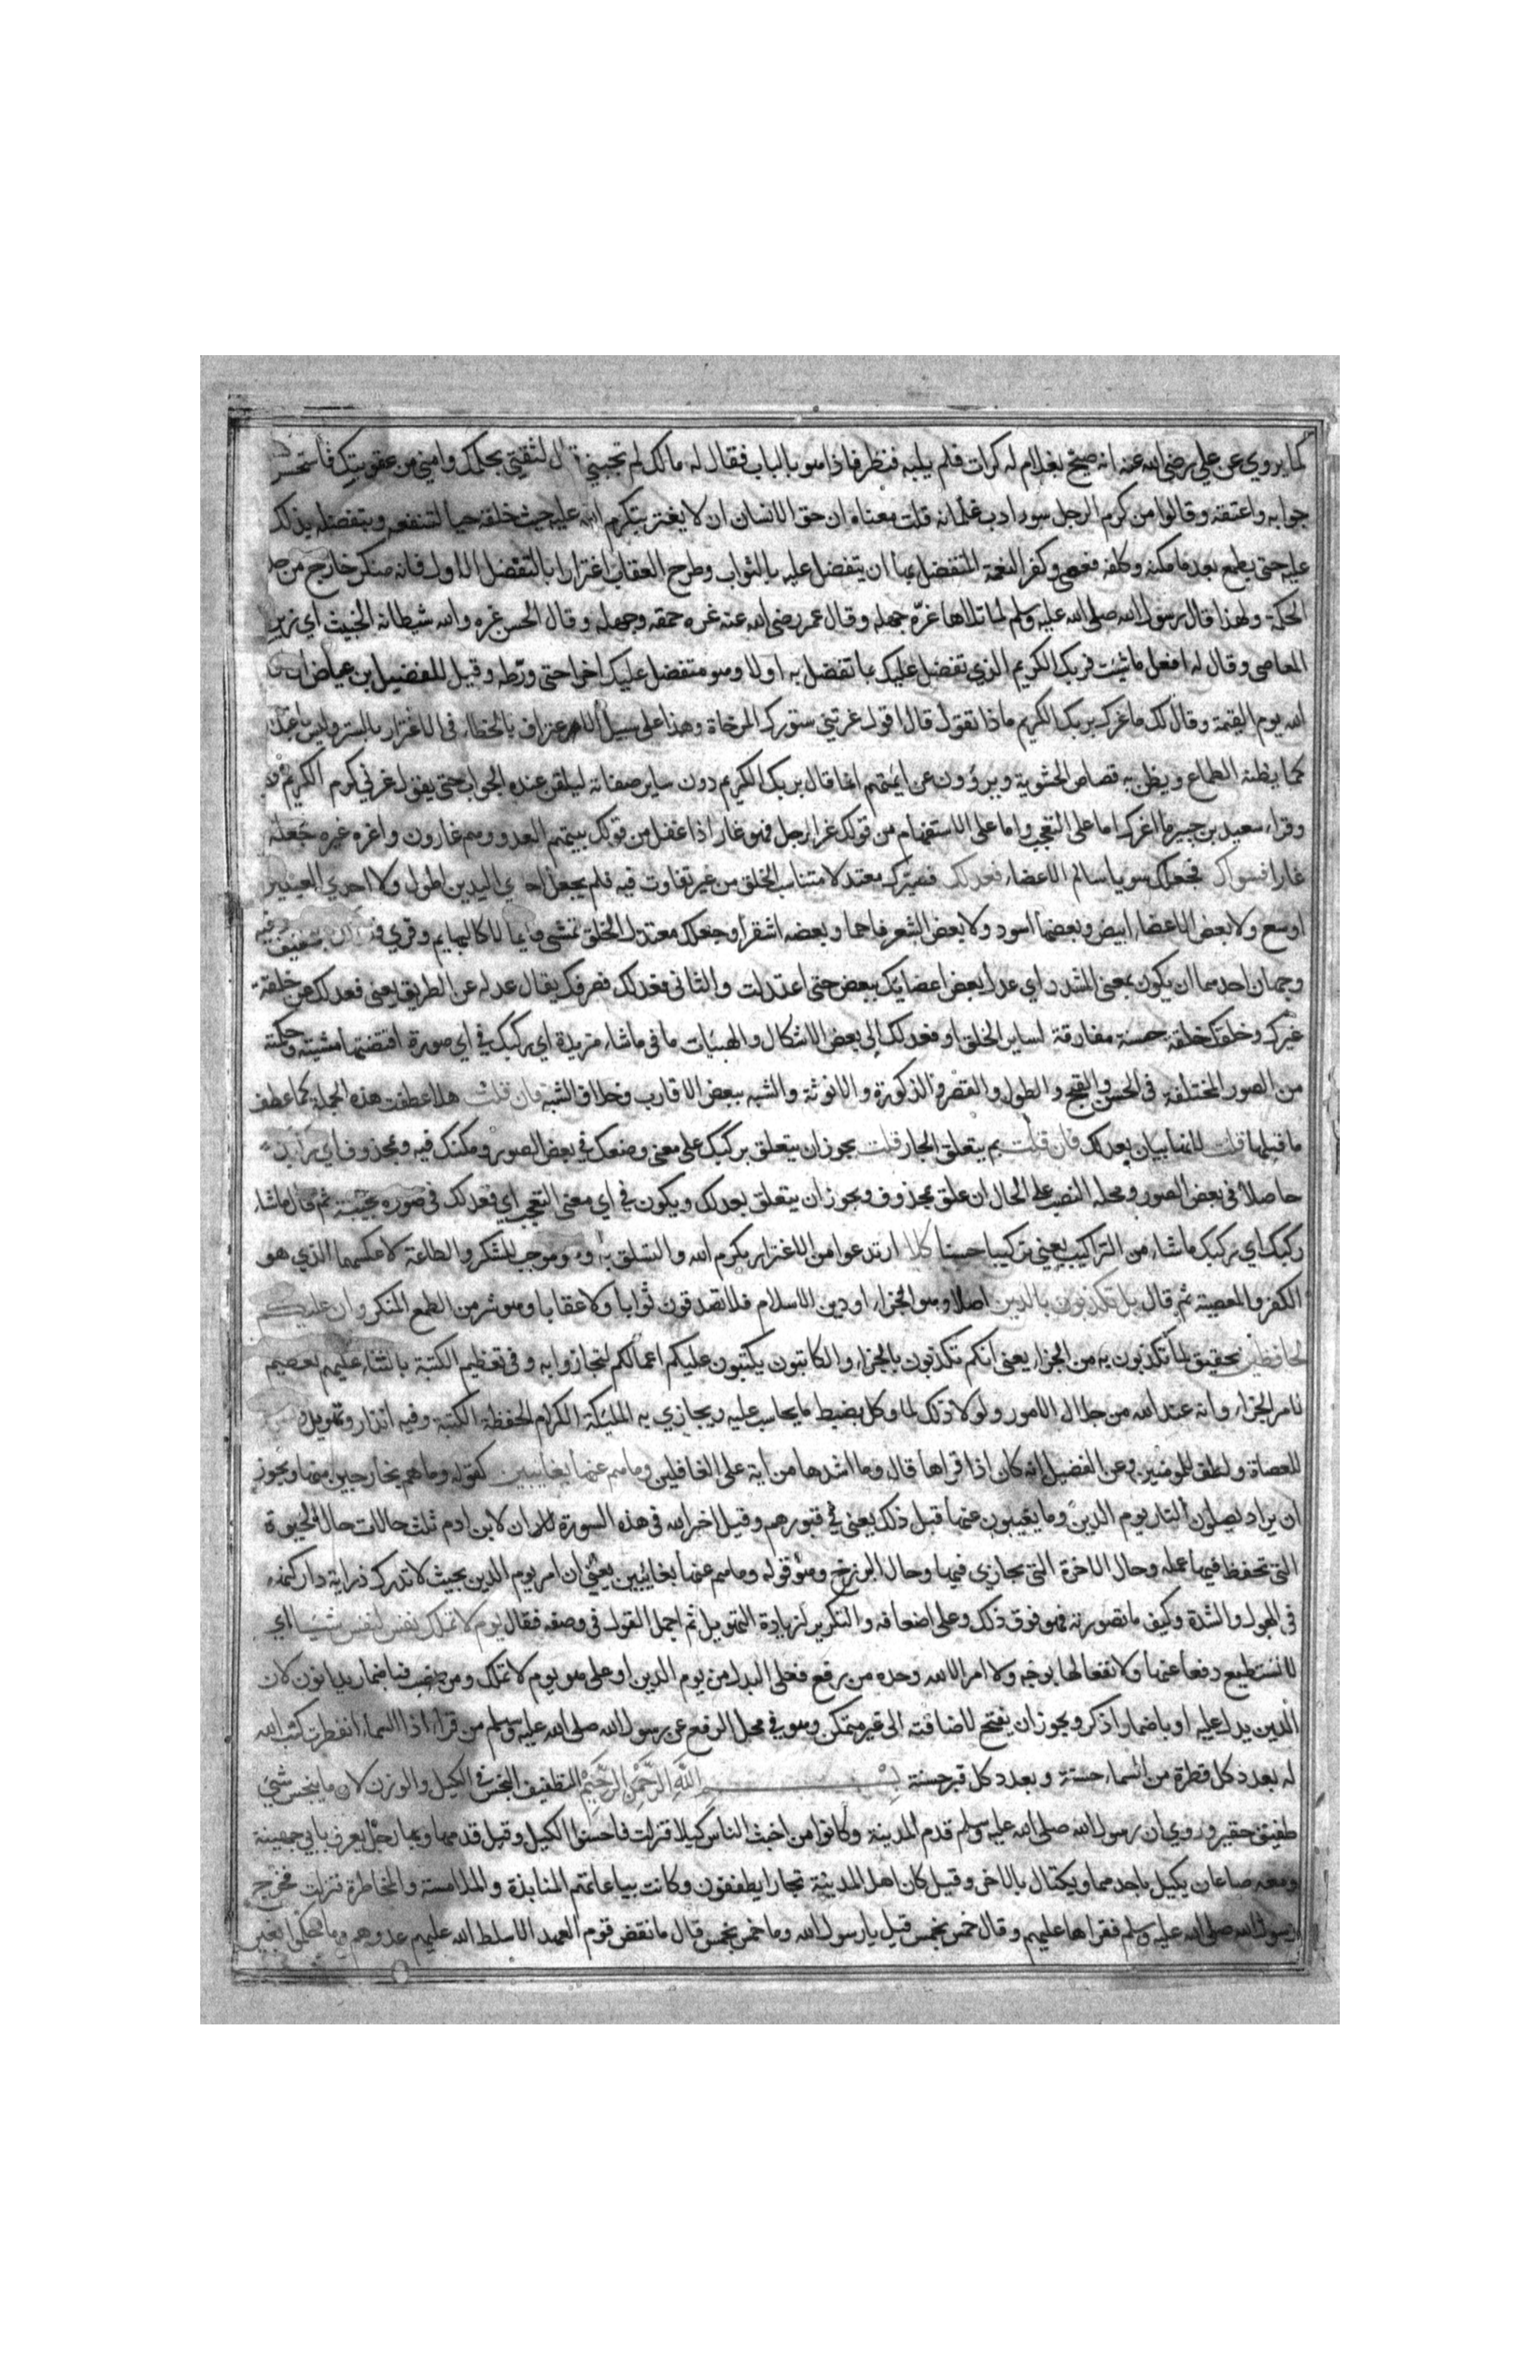 كما يروي عن علي رضي الله عنه انه صيح بغلام له كرات فلم يلبه فنظر فاذا هو بالباب فقال له مالك لم تجبني قال لثقتي بحلمك وامني من عقوبتك فاستحسن
جوابه واعتقه وقالوا من كرم الرجل سوء ادب غلمانه قلت معناه ان حق الانسان ان لا يغتر بتكرم الله عليه حيث خلقه حيا لينفعه وبتفضله بذلك
عليه حتى يطمع بعد ما مكنه وكلفه فعصى وكفر النعمة المتفضل بها ان يتفضل عليه بالثواب وطرح العقاب اغترارا بالتفضل الاول فانه منكر خارج من حد
الحكمة ولهذا قال رسول الله صلى الله عليه وسلم لما تلاها غره جهله وقال عمر رضي الله عنه غره حمقه وجهله وقال الحسن غره والله شيطانه الخبيث اي زين
المعاصي وقال له افعل ما شئت فربك الكريم الذي تفضل عليك بما تفضل به اولا وهو متفضل عليك اخرا حتى ورطه وقيل للفضيل بن عياض ان
الله يوم القيمة وقال لك ما غرك بربك الكريم ماذا تقول قال اقول غرتني ستورك المرخاة وهذا على سبيل الاعتراف بالخطاء في الاغترار بالستر وليس باعتذار
كما يظنه الطماع ويظن به قصاص الحشوية ويروون عن ايمتهم انما قال بربك الكريم دون ساير صفاته ليلقن عبده الجواب حتى يقول غرني كرم الكريم
وقراء سعيد بن جبير ما اغرك اما على التعجب واما على الاستفهام من قولك غر الرجل فهو غار اذا غفل من قولك بيتهم العدو وهم غارون واغره غيره جعله
غارا فسواك فجعلك سويا سالم الاعضاء فعدلك فصيرك معتدلا متناسب الخلق من غير تفاوت فيه فلم يجعل احدي اليدين اطول ولا احدي العينين
اوسع ولا بعض الاعضاء ابيض وبعضها اسود ولا بعض الشعر فاحما وبعضه اشقر او جعلك معتدل الخلق تمشي قايما لا كالبهايم وقري فعدلك بتخفيف وفيه
وجهان احدهما ان يكون بمعنى المشدد اي عدل بعض اعضايك ببعض حتى اعتدلت والثاني فعدلك فصرفك يقال عدله عن الطريق يعني فعدلك عن خلقة
غيرك وخلقك خلقة حسنة مفارقة لساير الخلق او فعدلك الى بعض الاشكال والهيئات ما في ما شاء مزيدة اي ركبك في اي صورة اقتضتها مشيته وحكمته
من الصور المختلفة في الحسن والقبح والطول والقصر والذكورة والانوثة والشبه ببعض الاقارب وخلاف الشبه فان قلت هلا عطفت هذه الجملة كما عطف
ما قبلها قلت لانها بيان لعدلك فان قلت بم يتعلق الجار قلت يجوز ان يتعلق بركبك على معنى وضعك في بعض الصور ومكنك فيه وبمحذوف اي ركبك
حاصلا في بعض الصور ومحله النصب على الحال ان علق بمحذوف ويجوز ان يتعلق بعدلك ويكون في اي معنى التعجب اي فعدلك في صورة عجيبة ثم قال ما شاء
ركبك اي ركبك ما شاء من التراكيب يعني تركيبا حسنا كلا ارتدعوا من الاغترار بكرم الله والتسلق به وهو موجب الشكر والطاعة لا عكسهما الذي هو
الكفر والمعصية ثم قال بل تكذبون بالدين اصلا وهو الجزاء او دين الاسلام فلا تصدقون ثوابا ولا عقابا وهو شر من الطمع المنكر وان عليكم
لحافظين تحقيق لما تكذبون به من الجزاء يعني انكم تكذبون بالجزاء والكاتبون يكتبون عليكم اعمالكم لتجازوا به وفي تعظيم الكتبة بالثناء عليهم تعظيم
لامر الجزاء وانه عند الله من جلال الامور ولولا ذلك لما وكل بضبط ما يحاسب عليه ويجازي به المليكة الكرام الحفظة الكتبة وفيه انذار وتهويل
للعصاة ولطف للمومنين وعن الفضيل انه كان اذا قراها قال وما اشدها من اية على الغافلين وما هم عنها بغايبين كقوله وما هم بخارجين منها ويجوز
ان يراد يصلون النار يوم الدين وما يغيبون عنها قبل ذلك يعني في قبورهم وقيل اخبر الله في هذه السورة ان لابن ادم ثلث حالات حال الحيوة
التي تحفظ فيها عمله وحال الاخرة التي يجازي فيها وحال البرزخ وهو قوله وما هم عنها بغائبين يعني ان امر يوم الدين بحيث لا تدرك دراية دار كنهه
في الهول والشدة وكيف ما تصورته فهو فوق ذلك وعلى اضعافه والتكرير لزيادة التهويل ثم اجمل القول في وصفه فقال يوم لا تملك نفس لنفس شيئا اي
لا تستطيع دفعا عنها ولا نفعا لها بوجه ولا امر الا لله وحده من رفع فعلى البدل من يوم الدين او على هو يوم لا تملك ومن نصب فباضمار يدانون لان
الدين يدل عليه او باضمار اذكر ويجوز ان يفتح لاضافته الى غير متمكن وهو في محل الرفع عن رسول الله صلى الله عليه وسلم من قرا اذا السماء انفطرت كتب الله
له بعدد كل قطرة من السماء حسنة وبعدد كل قبر حسنة بسم الله الرحمن الرحيم التطفيف البخس في الكيل والوزن لان ما يبخس شئ
طفيف حقير وروي ان رسول الله صلى الله عليه وسلم قدم المدينة وكانوا من اخبث الناس كيلا فنزلت فاحسنوا الكيل وقيل قدمها وبها رجل يعرف بابي جهينة
ومعه صاعان يكيل باحدهما ويكتال بالاخر وقيل كان اهل المدينة تجارا يطففون وكانت بياعاتهم المنابذة والملامسة والمخاطرة فنزلت فخرج
رسول الله صلى الله عليه وسلم فقراها عليهم وقال خمس بخمس قيل يا رسول الله وما خمس بخمس قال ما نقض قوم العهد الا سلط الله عليهم عدوهم وما حكموا بغير